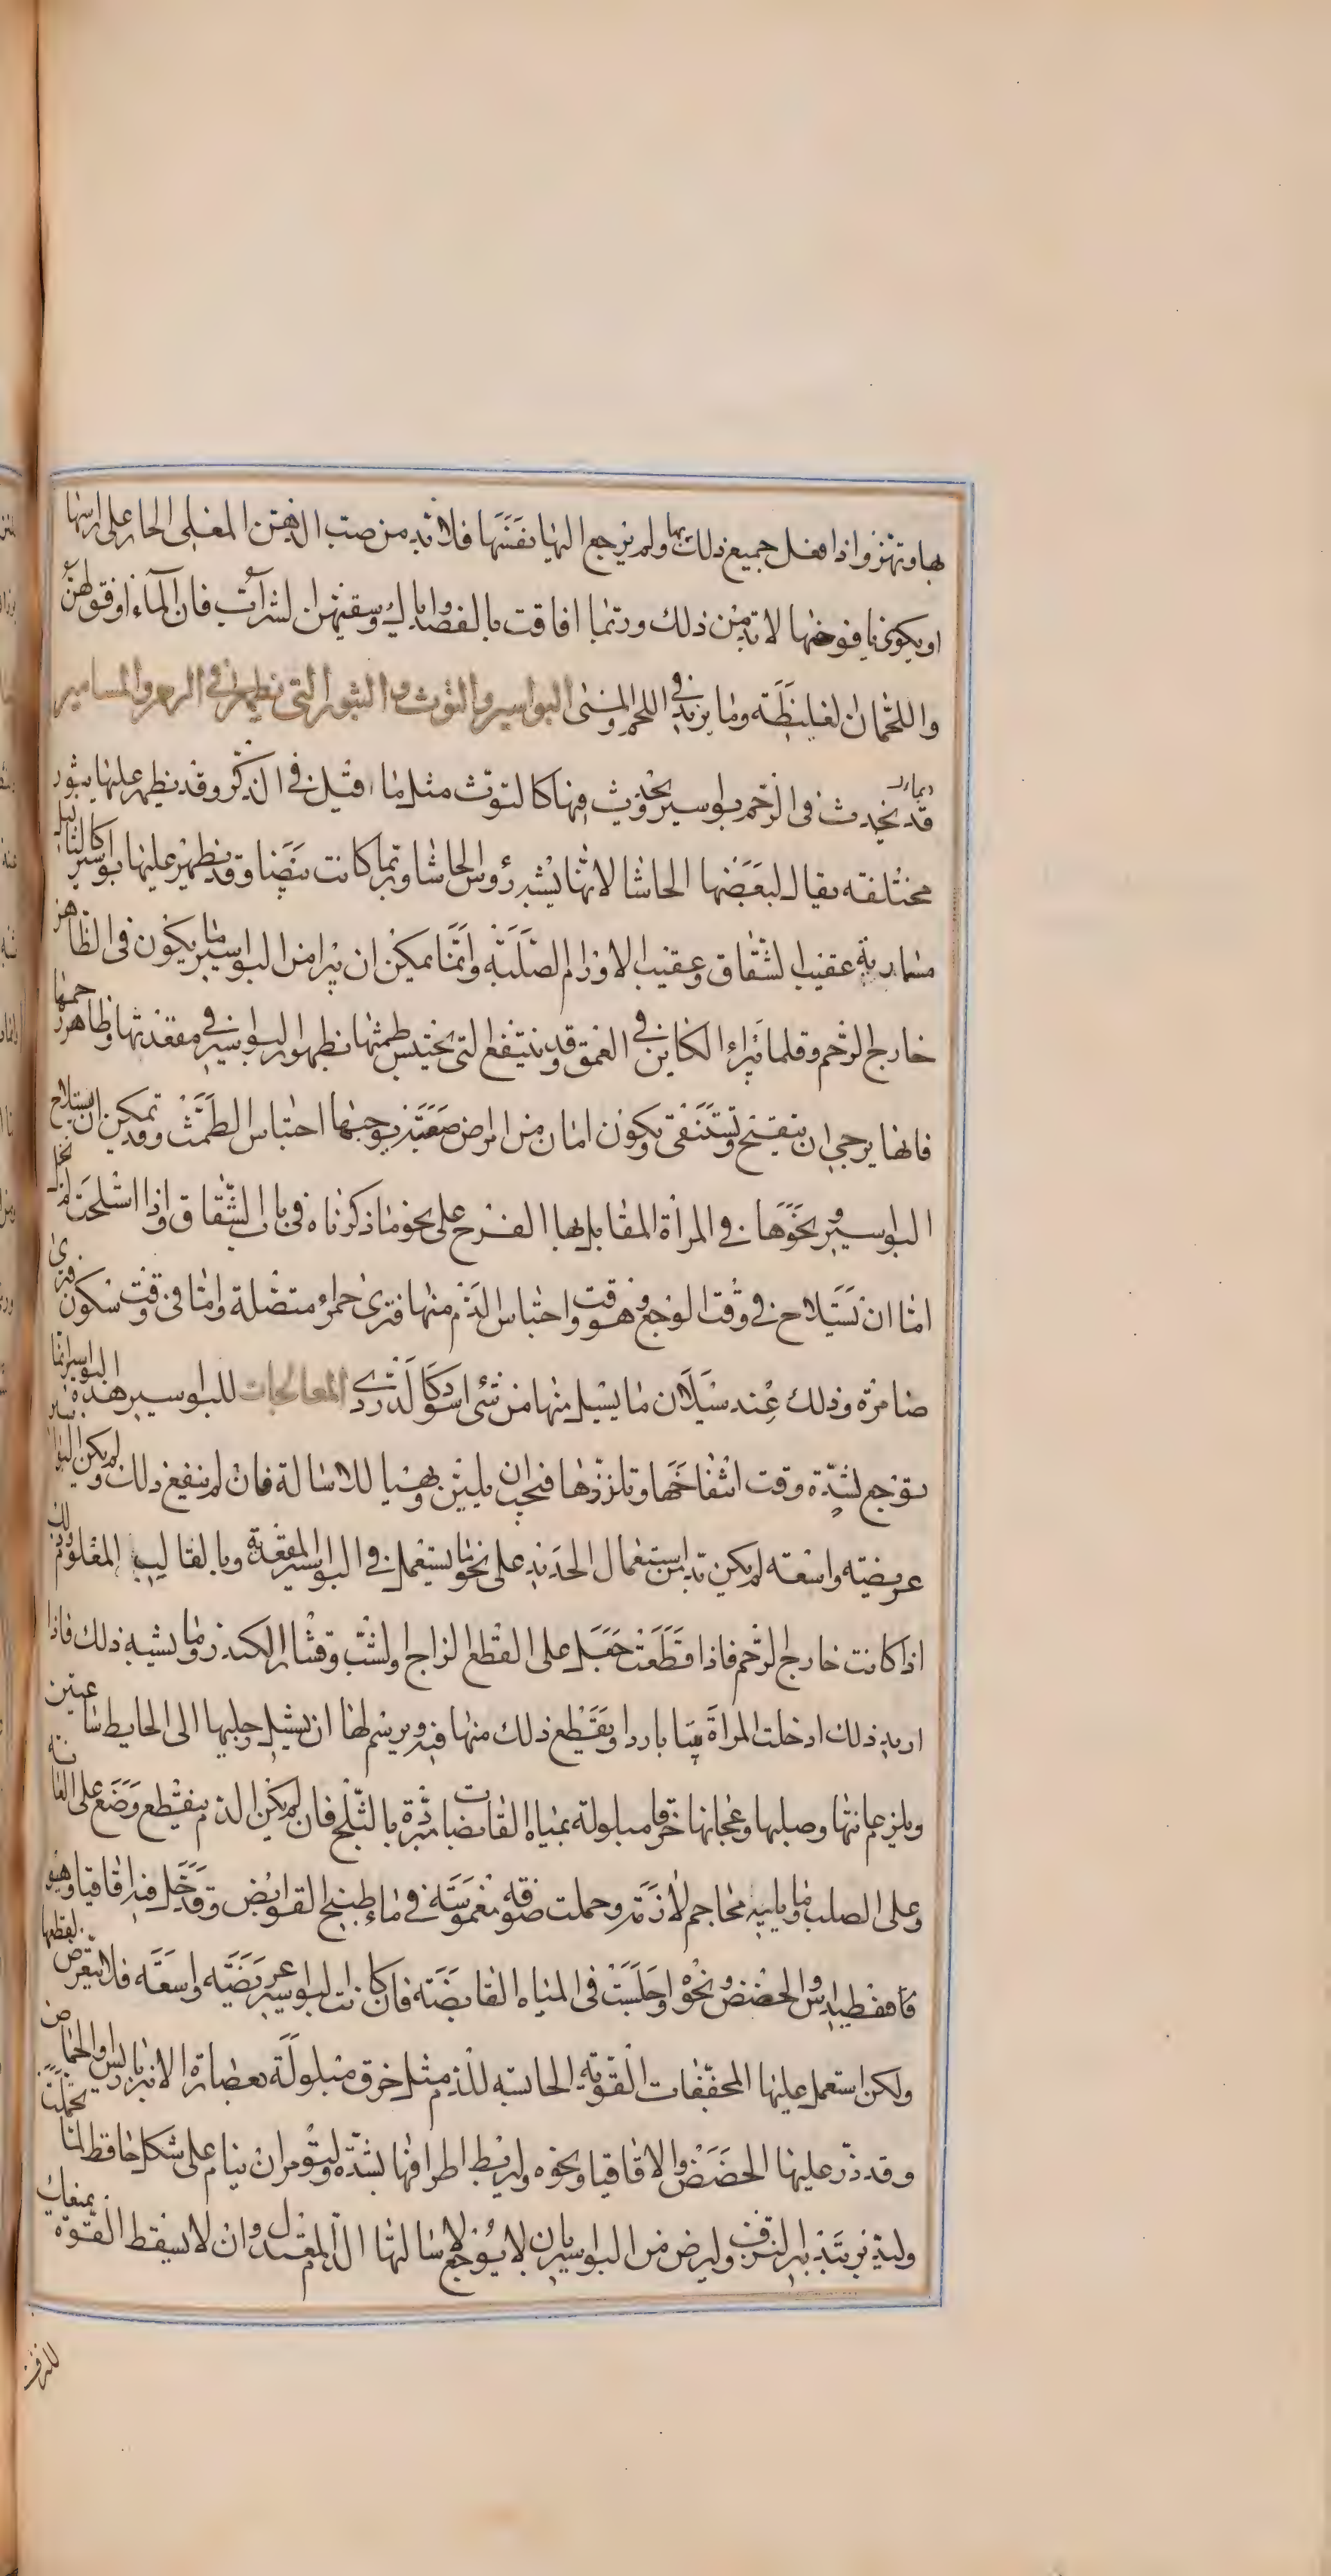 بها وتهز واذا فعل جميع ذلك بها ولم يرجع اليها نفسها فلا بد من صب الدهن المغلى الحار على راسها
او يكوى يافوخها لا بد من ذلك وربما افاقت بالفصد واياك وسقيهن الشراب فان الماء اوفق لهن
واللحمان الغليظة وما يزيد فى اللحم والمنى البواسير والتوث والبثور التى تظهر فى الرحم والمسامير
قد يحدث فى الرحم بواسير يحدث فيها كالتوث مثل ما قيل فى الذكر وقد يظهر عليها بثور
مختلفة يقال لبعضها الحاشا لانها يشبه رؤس الحاشا وربما كانت بيضا وقد يظهر عليها بواسير كالثاليل
مسمارية عقيب الشقاق وعقيب الاورام الصلبة وانما يمكن ان يبرا من البواسير ما يكون فى الظاهر
خارج الرحم وقلما يبراء الكاين فى العمق وقد ينتفع التى يحتبس طمثها بظهور البواسير فى مقعدتها وظاهر رحمها
فانها يرجى ان ينفتح وتستنقى ويكون امان من امراض صعبة يوجبها احتباس الطمث وقد يمكن ان يستلاح
البواسير ونحوها فى المرأة المقابل بها الفرج على نحو ما ذكرناه فى باب الشقاق واذا استلحت لم يخل
اما ان تستلاح فى وقت الوجع وهو وقت احتباس الدم منها فترى حمراء متصلة واما فى وقت سكون فترى
ضامرة وذلك عند سيلان ما يسيل منها من شئ اسود كالدردى المعالجات للبواسير هذه البواسير انما
توجع لشدة وقت انتفاخها وتلززها فيجب ان يلين ويهيا للاسالة فان لم ينفع ذلك ولم يكن البواسير
عريضية واسعة لم يكن بد من استعمال الحديد على نحو ما يستعمل فى البواسير المقعدية وبالقالب المعلوم وذلك
اذا كانت خارج الرحم فاذا قطعت جعل على القطع الزاج والشب وقشار الكندر وما يشبه ذلك فاذا
اريد ذلك ادخلت المراة بيتا باردا ويقطع ذلك منها فيه ويرسم لها ان يشيل رجليها الى الحايط ساعتين
ويلزم عانتها وصلبها وعجانها خرقا مبلولة بمياه القابضات مبردة بالثلج فان لم يكن الدم ينقطع وضع على العانة
وعلى الصلب وما يليه محاجم لازمة وحملت صوفة مغموسة فى ماء طبيخ القوابض وقد حل فيه اقاقيا وهيو
فاقسطيداس والحضض ونحوه واجلست فى المياه القابضة فان كانت البواسير عريضية واسعة فلا يتعرض لقطعها
ولكن استعمل عليها المجففات القوية الحابسة للدم مثل خرق مبلولة بعصارة الانبرباريس والحماض يحتملنا
وقد ذر عليها الحضض والاقاقيا ونحوه وليربط اطرافها بشدة وليؤمر ان ينام على شكل حافظ لنا
وليدبر بتدبير النزف وليرض من البواسير بان لا يوجع لاسالتها الدم المعتدل وان لا يسقط القوة بمنعك
للنزف